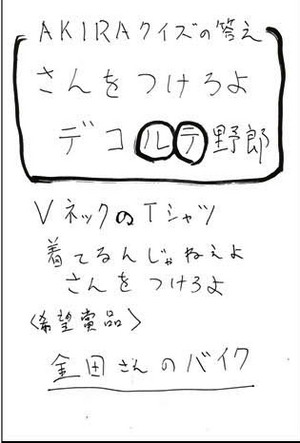 AKIRAクイズの答え
さんをつけろよ
デコルテ野郎
VネックのTシャツ
着てるんじゃねえよ
さんをつけろよ
〈希望賞品〉
金田さんのバイク